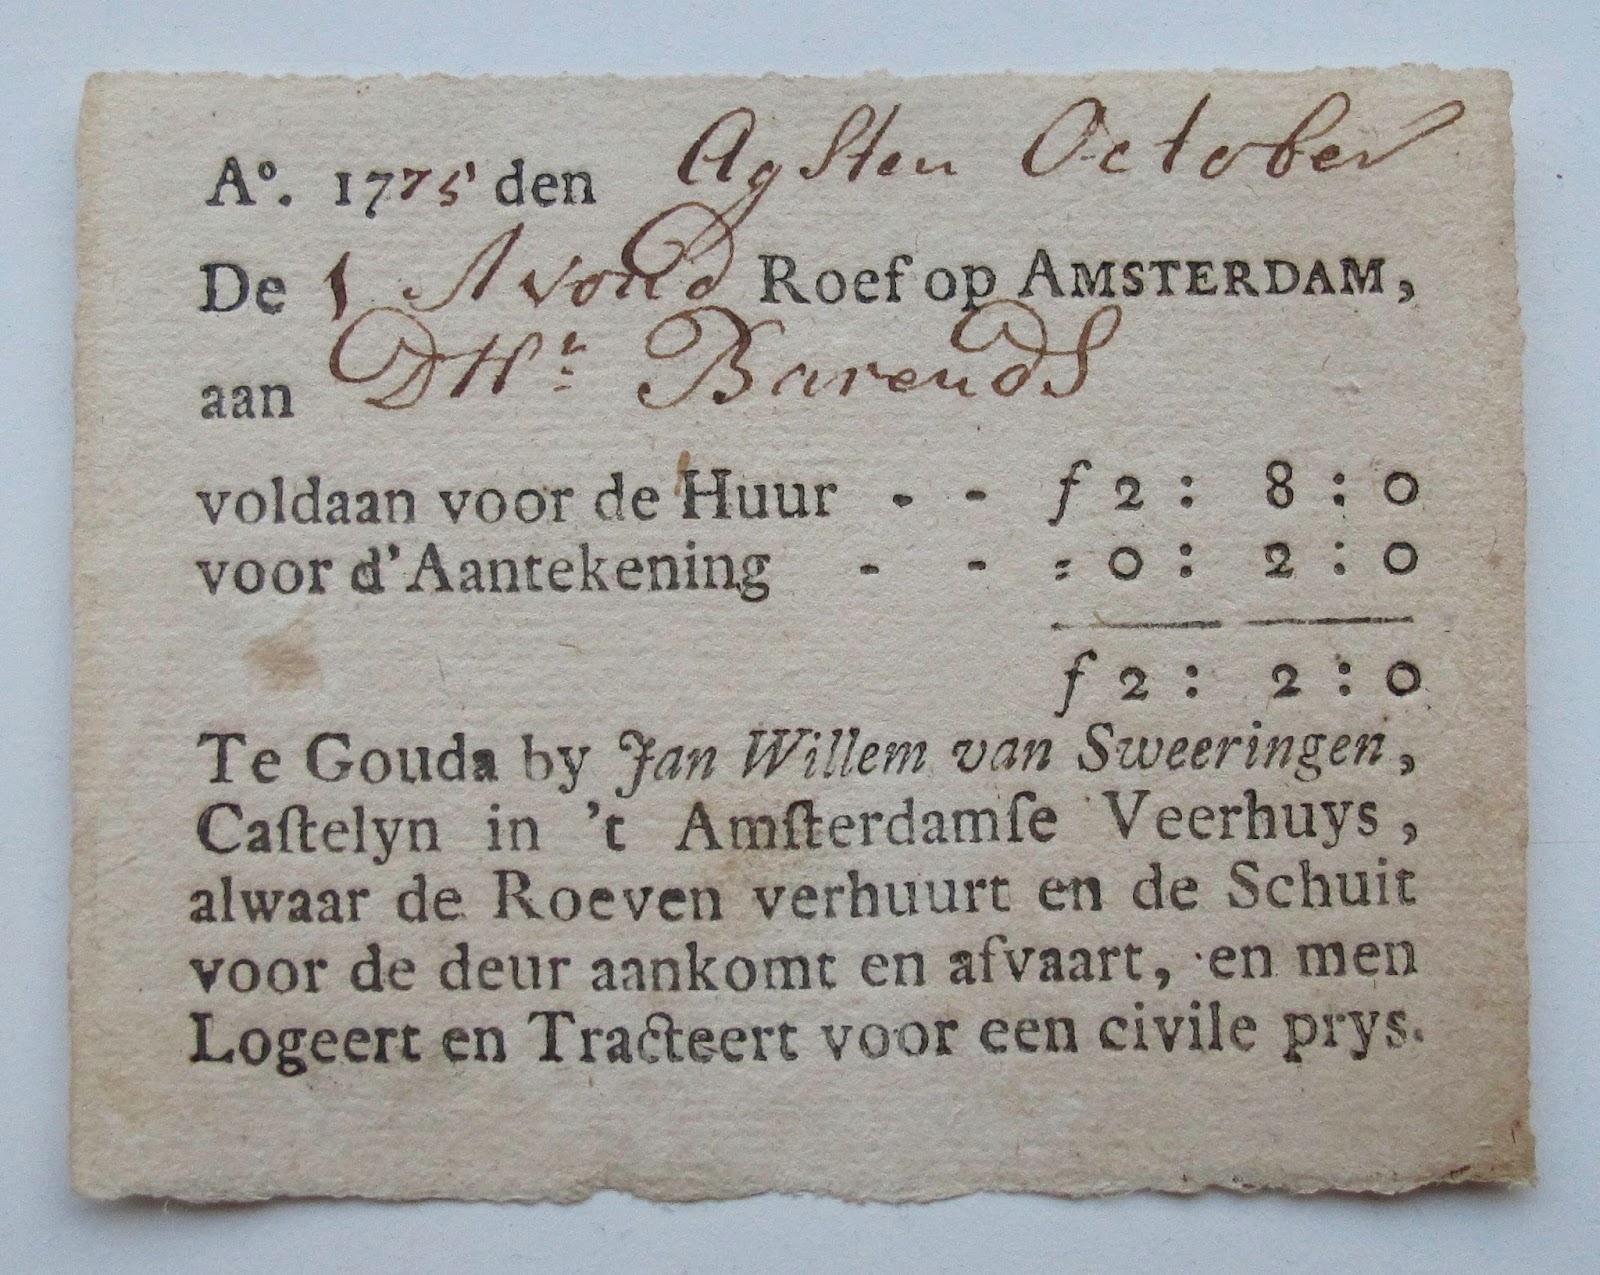 Aº. 1775 den Agsten October
De 1 Avond Roef op AMSTERDAM,
aan DHr: Barends
voldaan voor de Huur - - f 2 : 8 : 0
voor d'Aantekening - - : 0 : 2 : 0
f 2 : 2 : 0
Te Gouda by Jan Willem van Sweeringen,
Caſtelyn in 't Amſterdamſe Veerhuys,
alwaar de Roeven verhuurt en de Schuit
voor de deur aankomt en afvaart, en men
Logeert en Tracteert voor een civile prys.